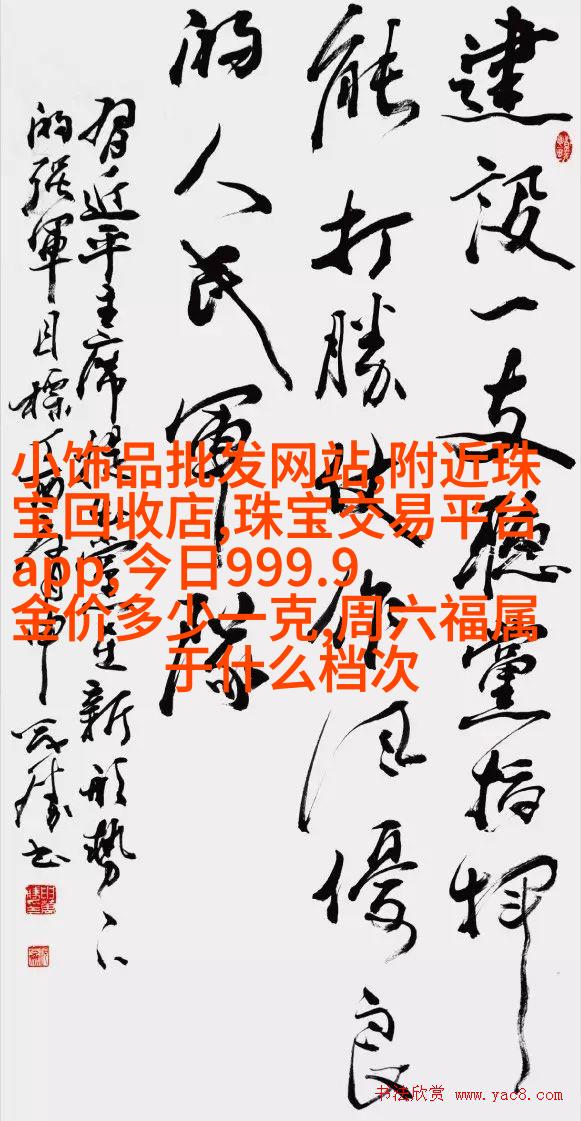 建设一支聽黨指挥
能打勝仗作风優良
的人民軍隊
习近平主席提出党在新形势下
的强軍目標
小饰品批发网站,附近珠
宝回收店,珠宝交易平台
app,今日999.9
金价多少一克,周六福属
于什么档次
书法欣赏 www.yac8.com